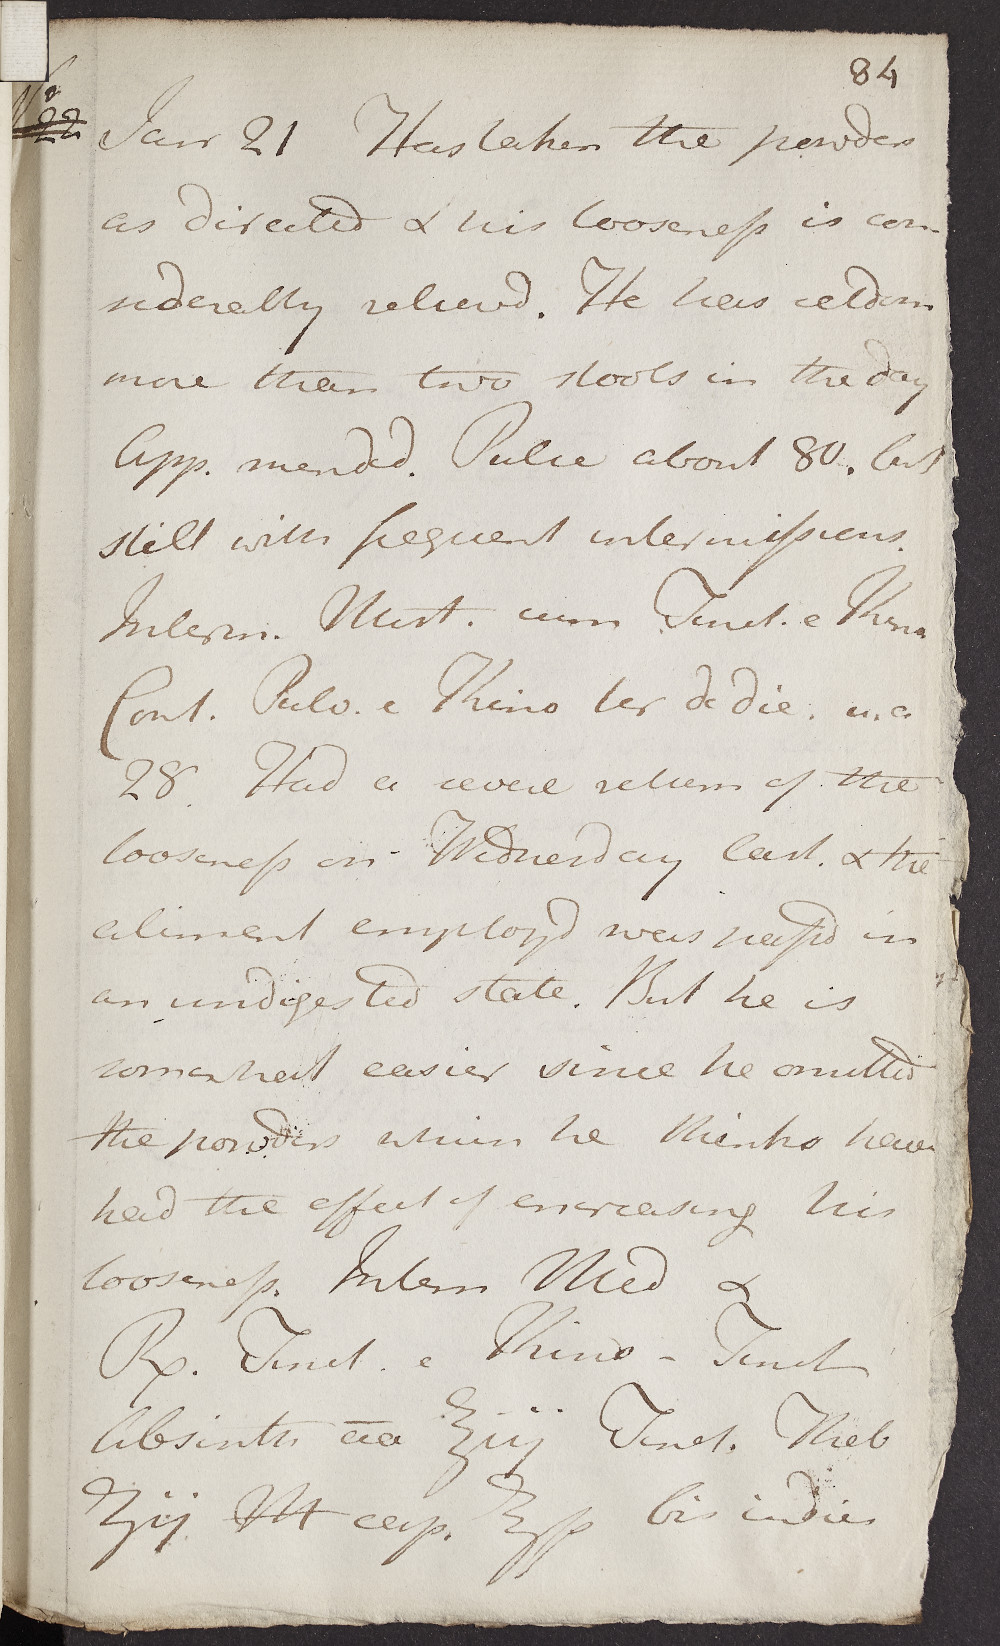 84
No
22
Janr 21 Has taken the powders
as directed & his looseness is con-
siderably relievd. He has seldom
more than two stools in the day
App. mended. Pulse about 80. but
still with frequent intermissions.
Interm. Mist. cum Tinct. e Kino
Cont. Pulv. e Kino ter de die. m.a
28. Had a severe return of the
looseness on Wednesday last. & the
aliment employd was passd in
an undigested state. But he is
somewhat easier since he omitted
the powders which he thinks have
had the effect of encreasing his
looseness. Interm Med &
Rx. Tinct. e Kino - Tinct
Absinth aa ʒiij Tinct. Theb
ʒij M cap. ʒss bis indies